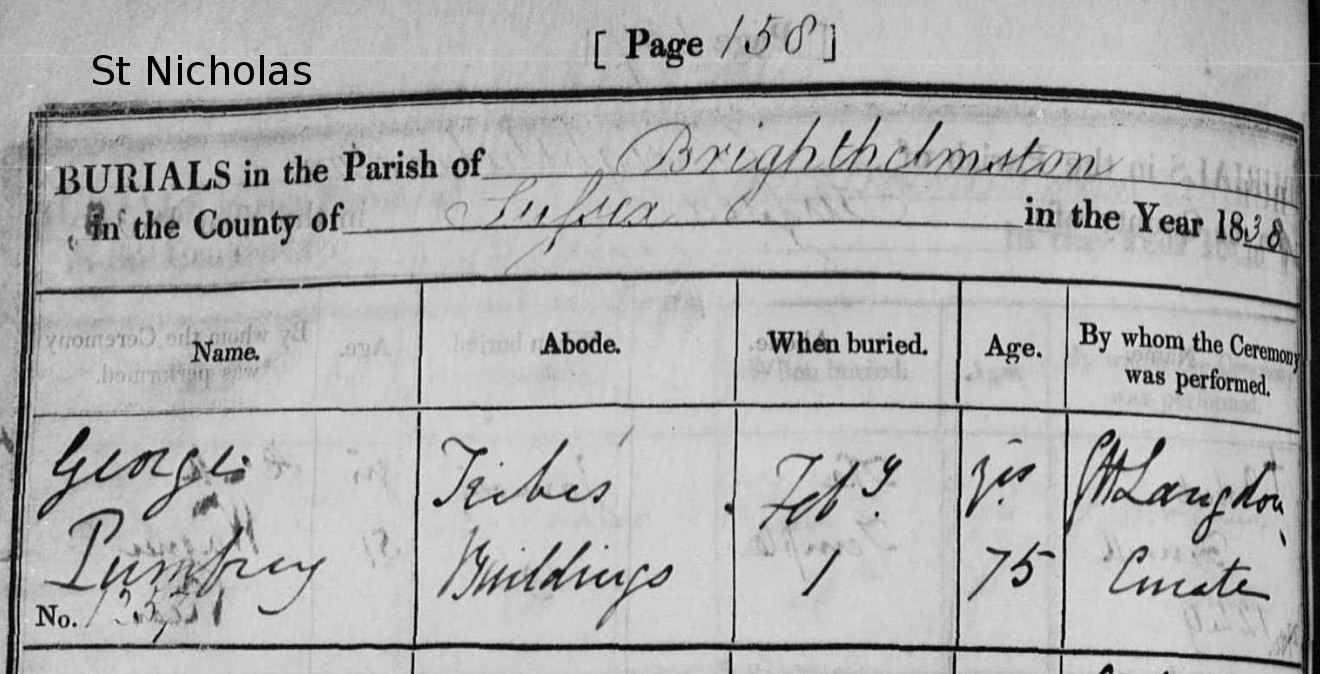 [ Page 158 ]
St Nicholas
BURIALS in the Parish of Brighthelmston
in the County of Sussex in the Year 1838
Name. Abode. When buried. Age. By whom the Ceremony was performed.
George Feby yrs Langdon
Pumfrey Buildings 1 75 Curate
No.